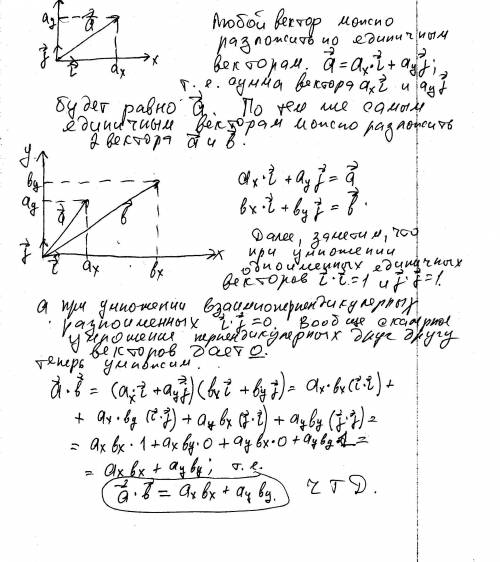 ay a⃗
j⃗ i⃗ ax x
Любой вектор можно
разложить по единичным
векторам. a⃗ = ax·i⃗ + ay j⃗;
т.е. сумма вектора ax i⃗ и ay j⃗
будет равно a⃗. По тем же самым
единичным векторам можно разложить
2 вектора a⃗ и b⃗.
y
by
ay a⃗ b⃗
j⃗ i⃗ ax bx x
ax·i⃗ + ay j⃗ = a⃗
bx·i⃗ + by j⃗ = b⃗
Далее, заметим, что
при умножении
одноименных единичных
векторов i⃗·i⃗=1 и j⃗·j⃗=1.
а при умножении взаимоперпендикулярных
разноименных i⃗·j⃗=0. Вообще скалярное
умножение перпендикулярных друг другу
векторов дает 0.
теперь умножим.
a⃗·b⃗ = (ax i⃗ + ay j⃗)(bx i⃗ + by j⃗) = ax·bx(i⃗·i⃗) +
+ ax·by(i⃗·j⃗) + ay bx(j⃗·i⃗) + ay by(j⃗·j⃗) =
= ax bx·1 + ax by·0 + ay bx·0 + ay by·1 =
= ax bx + ay by; т.е.
a⃗·b⃗ = ax bx + ay by. ЧТД.